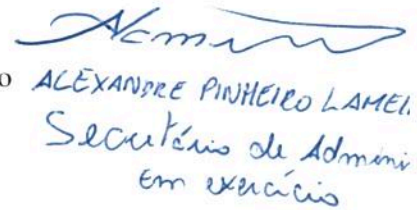 o ALEXANDRE PINHEIRO LAMEI
Secretário de Admini
em exercício